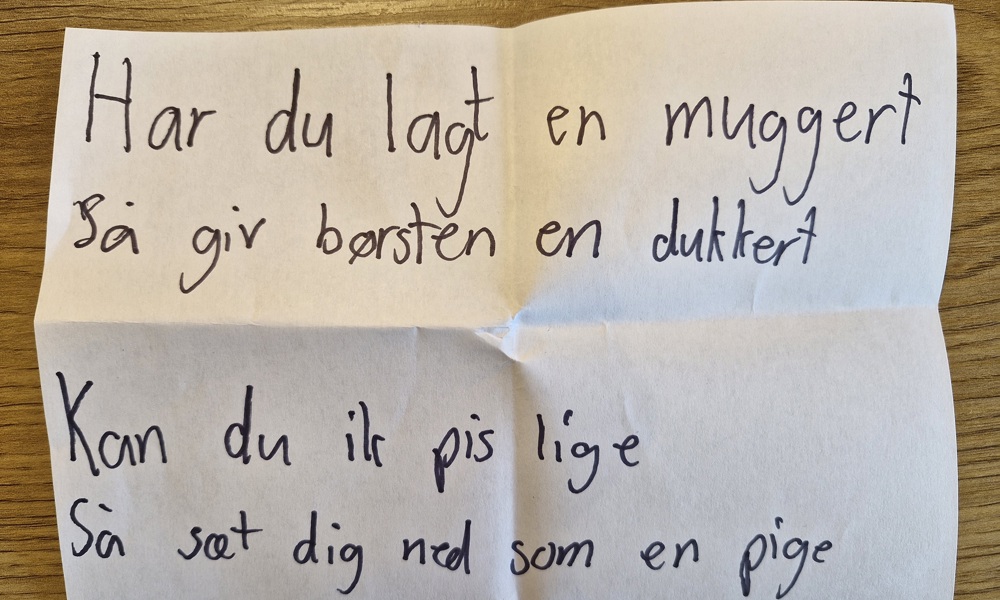 Har du lagt en muggert
Så giv børsten en dukkert
Kan du ik pis lige
Så sæt dig ned som en pige